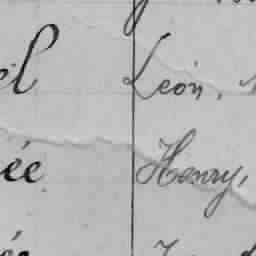 el Léon,
ée Henry,
ée